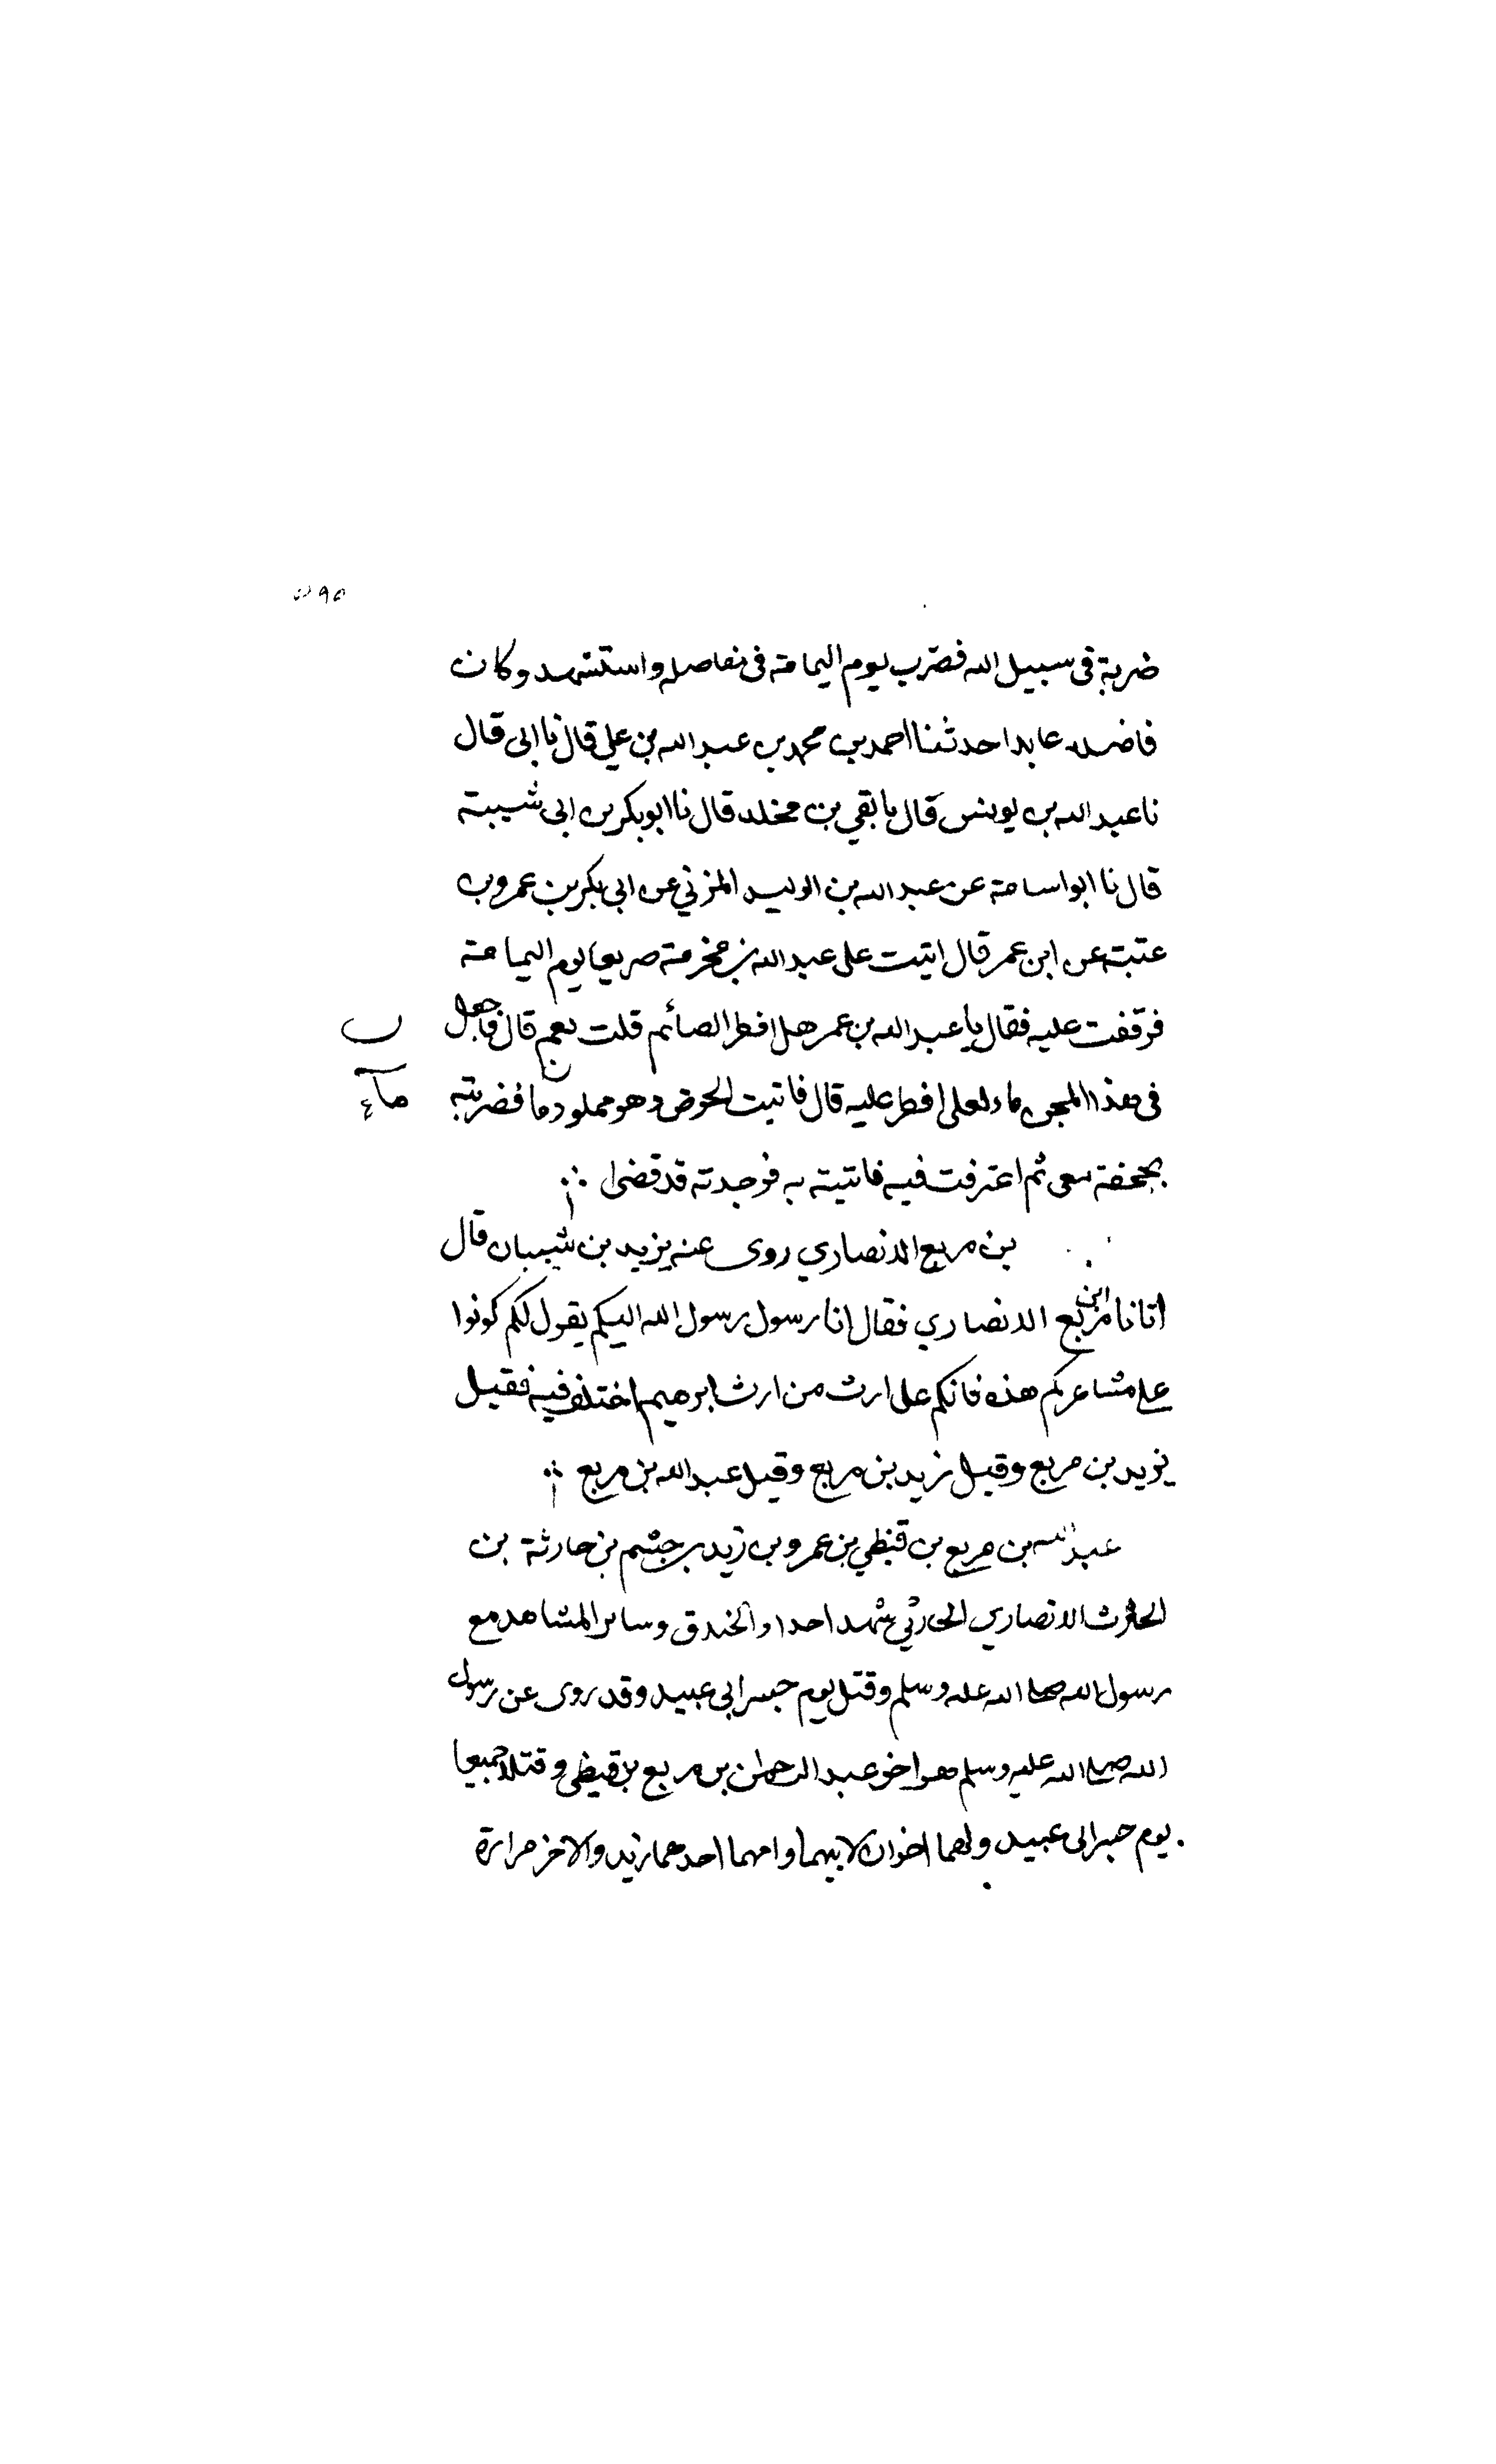 ٥٩٥
ضربة فى سبيل الله فضرب يوم اليمامة فى مفاصله واستشهد وكان
فاضلا عابدا حدثنا احمد بن محمد بن عبد الله بن علي قال نا ابى قال
نا عبد الله بن يونس قال نا بقي بن مخلد قال نا ابو بكر بن ابى شيبة
قال نا ابو اسامة عن عبد الله بن الوليد المزني عن ابى بكر بن عمرو بن
عتبة عن ابن عمر قال اتيت على عبد الله بن مخرمة صريعا يوم اليمامة
فوقفت عليه فقال يا عبد الله بن عمر هل افطر الصائم قلت نعم قال فاجعل
فى هذا المجن ماء لعلى افطر عليه قال فاتيت الحوض وهو مملو دما فضربته
مآء
بجحفة معى ثم اغترفت فيه فاتيته به فوجدته قد قضى
بن مربع الانصاري روى عنه يزيد بن شيبان قال
اتانا ابن مربع الانصاري فقال انا رسول رسول الله اليكم يقول لكم كونوا
على مشاعركم هذه فانكم على ارث من ارث ابرهيم اختلف فيه فقيل
يزيد بن مربع وقيل زيد بن مربع وقيل عبد الله بن مربع
عبد الله بن مربع بن قيظي بن عمرو بن زيد بن جشم بن حارثة بن
الحارث الانصاري الحارثي شهد احدا والخندق وسائر المشاهد مع
رسول الله صلى الله عليه وسلم وقتل يوم جسر ابى عبيد وقد روى عن رسول
الله صلى الله عليه وسلم هو اخو عبد الرحمن بن مربع بن قيظى وقتلا جميعا
يوم جسر ابى عبيد ولهما اخوان لابيهما وامهما احدهما زيد والاخر مرارة